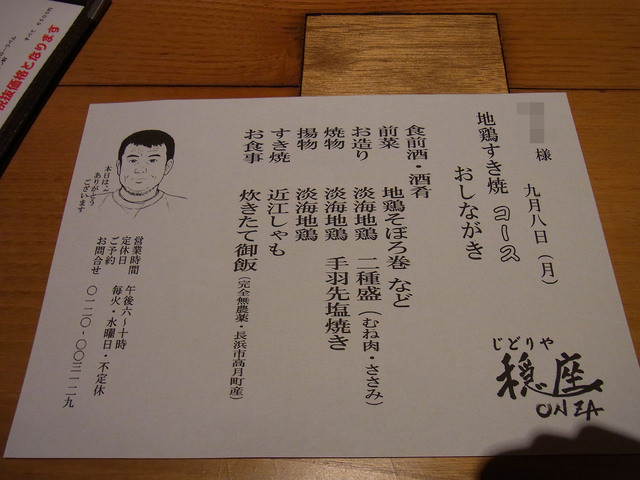 様　九月八日（月）
地鶏すき焼 コース
おしながき
食前酒・酒肴
前菜　地鶏そぼろ巻 など
お造り　淡海地鶏　二種盛（むね肉・ささみ）
焼物　淡海地鶏　手羽先塩焼き
揚物　淡海地鶏
すき焼　近江しゃも
お食事　炊きたて御飯（完全無農薬・長浜市高月町産）
じどりや
穏座
ONZA
本日は、
ありがとう
ございます
営業時間　午後六〜十時
定休日　毎火・水曜日・不定休
ご予約
お問合せ　〇一二〇-〇〇三一二九
税抜価格となります